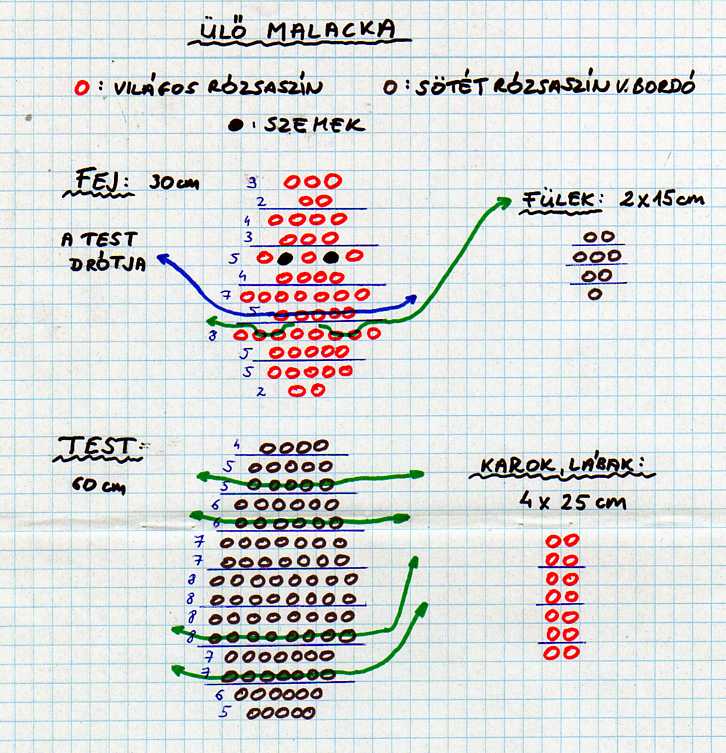 ÜLŐ MALACKA
O: VILÁGOS RÓZSASZÍN O: SÖTÉT RÓZSASZÍN V. BORDÓ
●: SZEMEK
FEJ: 30 cm
A TEST
DRÓTJA
3
2
4
3
5
4
7
5
8
5
5
2
FÜLEK: 2 x 15 cm
TEST:
60 cm
4
5
5
6
6
7
7
8
8
8
8
7
7
6
5
KAROK, LÁBAK:
4 x 25 cm